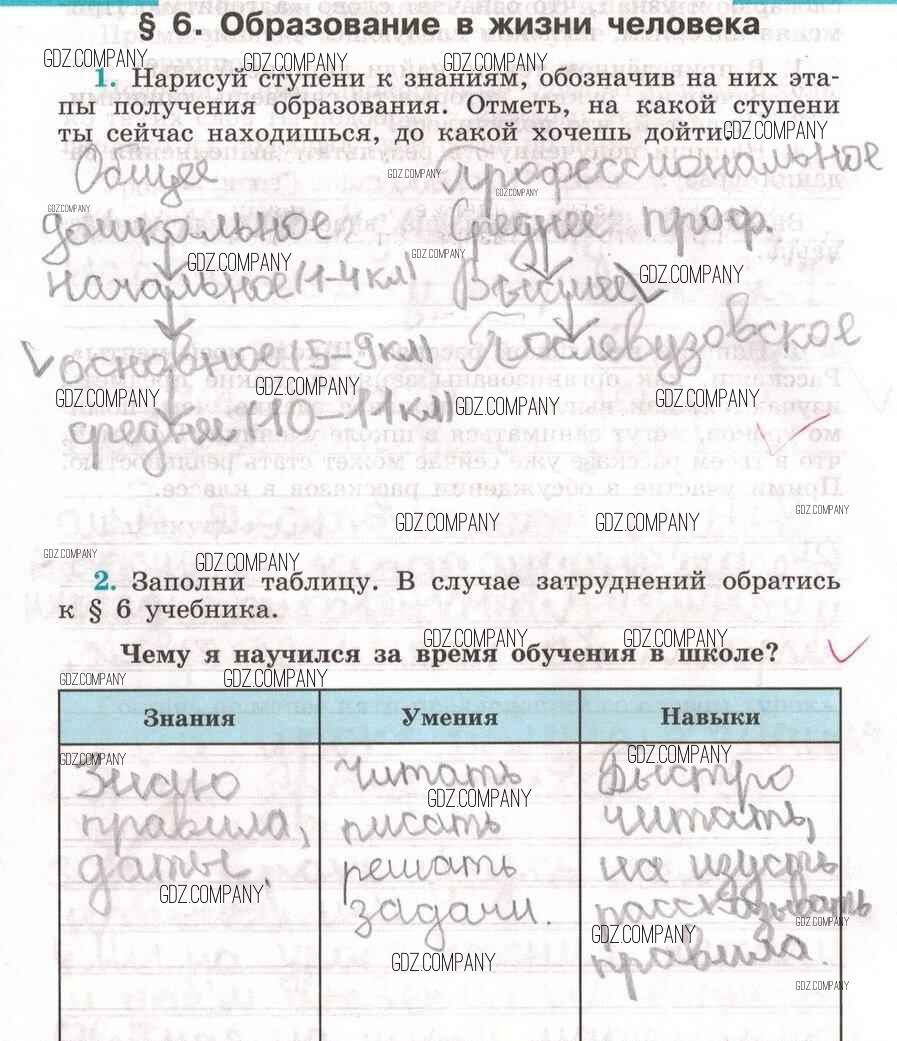 § 6. Образование в жизни человека
GDZ.COMPANY GDZ.COMPANY GDZ.COMPANY GDZ.COMPANY
1. Нарисуй ступени к знаниям, обозначив на них эта-
пы получения образования. Отметь, на какой ступени
ты сейчас находишься, до какой хочешь дойти.
GDZ.COMPANY
Общее Профессиональное
GDZ.COMPANY GDZ.COMPANY
GDZ.COMPANY
дошкольное Среднее проф.
GDZ.COMPANY GDZ.COMPANY GDZ.COMPANY
начальное (1-4 кл) Высшее
основное (5-9 кл) Послевузовское
GDZ.COMPANY GDZ.COMPANY GDZ.COMPANY GDZ.COMPANY
среднее (10-11 кл)
GDZ.COMPANY GDZ.COMPANY GDZ.COMPANY
GDZ.COMPANY GDZ.COMPANY
2. Заполни таблицу. В случае затруднений обратись
к § 6 учебника.
GDZ.COMPANY GDZ.COMPANY
Чему я научился за время обучения в школе?
GDZ.COMPANY GDZ.COMPANY
Знания Умения Навыки
GDZ.COMPANY GDZ.COMPANY
Знаю Читать Быстро
GDZ.COMPANY
правила, писать читать,
даты. решать на изусть
GDZ.COMPANY
задачи. рассказывать
GDZ.COMPANY GDZ.COMPANY
правила.
GDZ.COMPANY GDZ.COMPANY